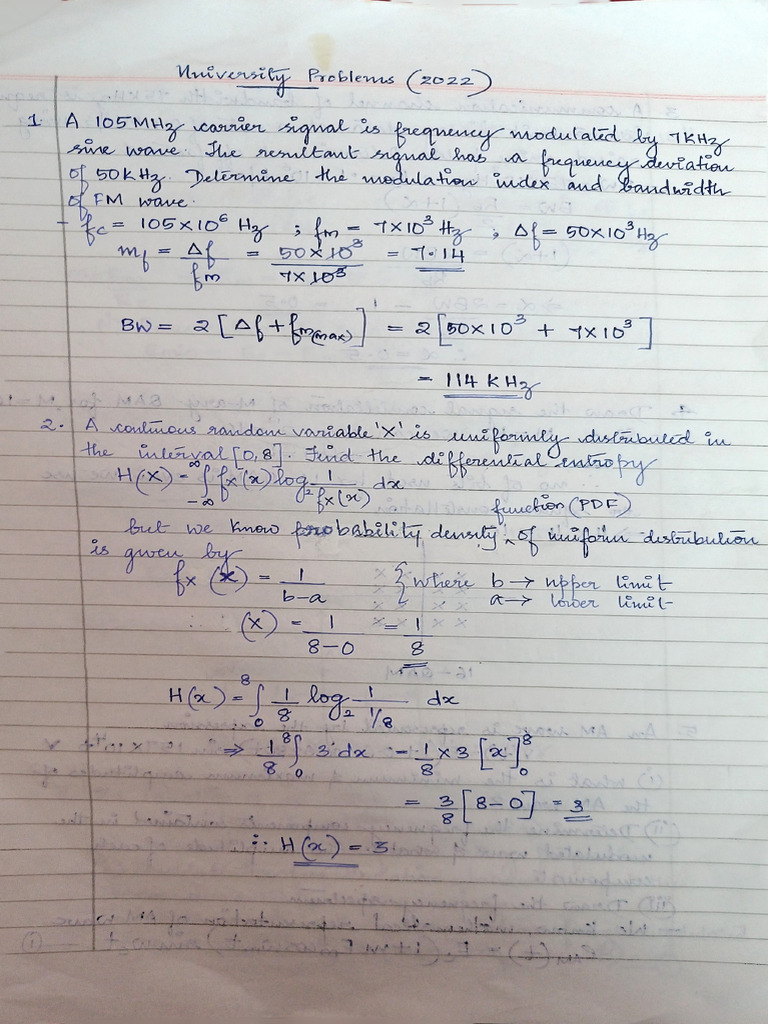 University Problems (2022)
1 A 105MHz carrier signal is frequency modulated by 7KHz
sine wave. The resultant signal has a frequency deviation
of 50KHz. Determine the modulation index and bandwidth
of FM wave.
- fc = 105×10⁶ Hz ; fm = 7×10³ Hz ; Δf = 50×10³Hz
mf = Δf/fm = 50×10³/7×10³ = 7.14
BW = 2[Δf + fm(max)] = 2[50×10³ + 7×10³]
= 114 KHz
2. A continous random variable 'X' is uniformly distributed in
the interval [0,8]. Find the differential entropy
H(x) = ∫_{-∞}^{∞} fx(x) log₂ 1/fx(x) dx
function (PDF)
but we know probability density ^ of uniform distribution
is given by
fx (x) = 1/b-a {where b → upper limit
a → lower limit
∴ (x) = 1/8-0 = 1/8
H(x) = ∫₀⁸ 1/8 log₂ 1/1/8 dx
⇒ 1/8 ∫₀⁸ 3 dx = 1/8 × 3 [x]₀⁸
= 3/8 [8-0] = 3
∴ H(x) = 3